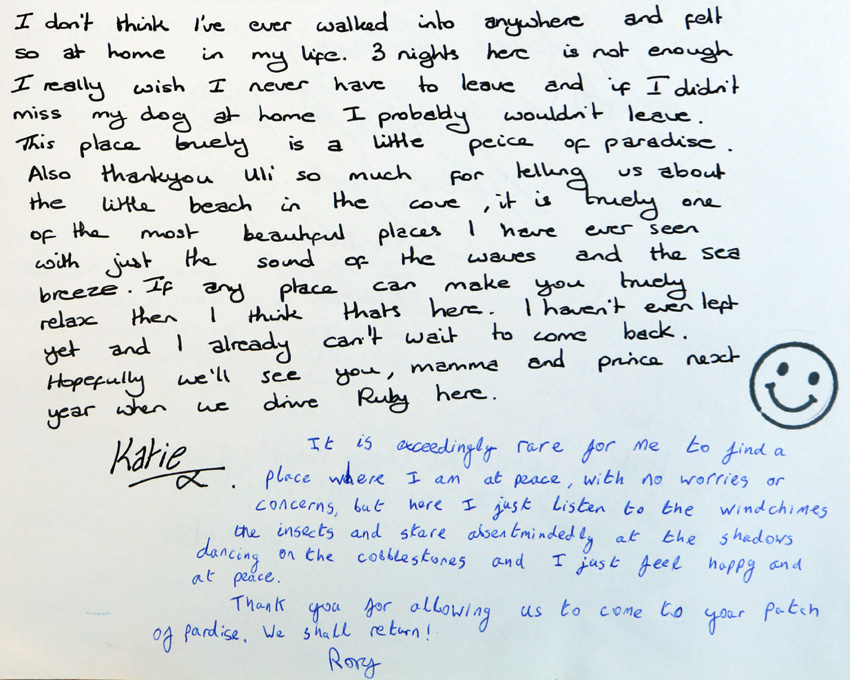 I don't think I've ever walked into anywhere and felt
so at home in my life. 3 nights here is not enough
I really wish I never have to leave and if I didn't
miss my dog at home I probably wouldn't leave.
This place truely is a little peice of paradise.
Also thankyou Uli so much for telling us about
the little beach in the cove, it is truely one
of the most beautiful places I have ever seen
with just the sound of the waves and the sea
breeze. If any place can make you truely
relax then I think thats here. I haven't even left
yet and I already can't wait to come back.
Hopefully we'll see you, mamma and prince next
year when we drive Ruby here.
Katie
It is exceedingly rare for me to find a
place where I am at peace, with no worries or
concerns, but here I just listen to the windchimes
the insects and stare absentmindedly at the shadows
dancing on the cobblestones and I just feel happy and
at peace.
Thank you for allowing us to come to your patch
of pardise. We shall return!
Rory